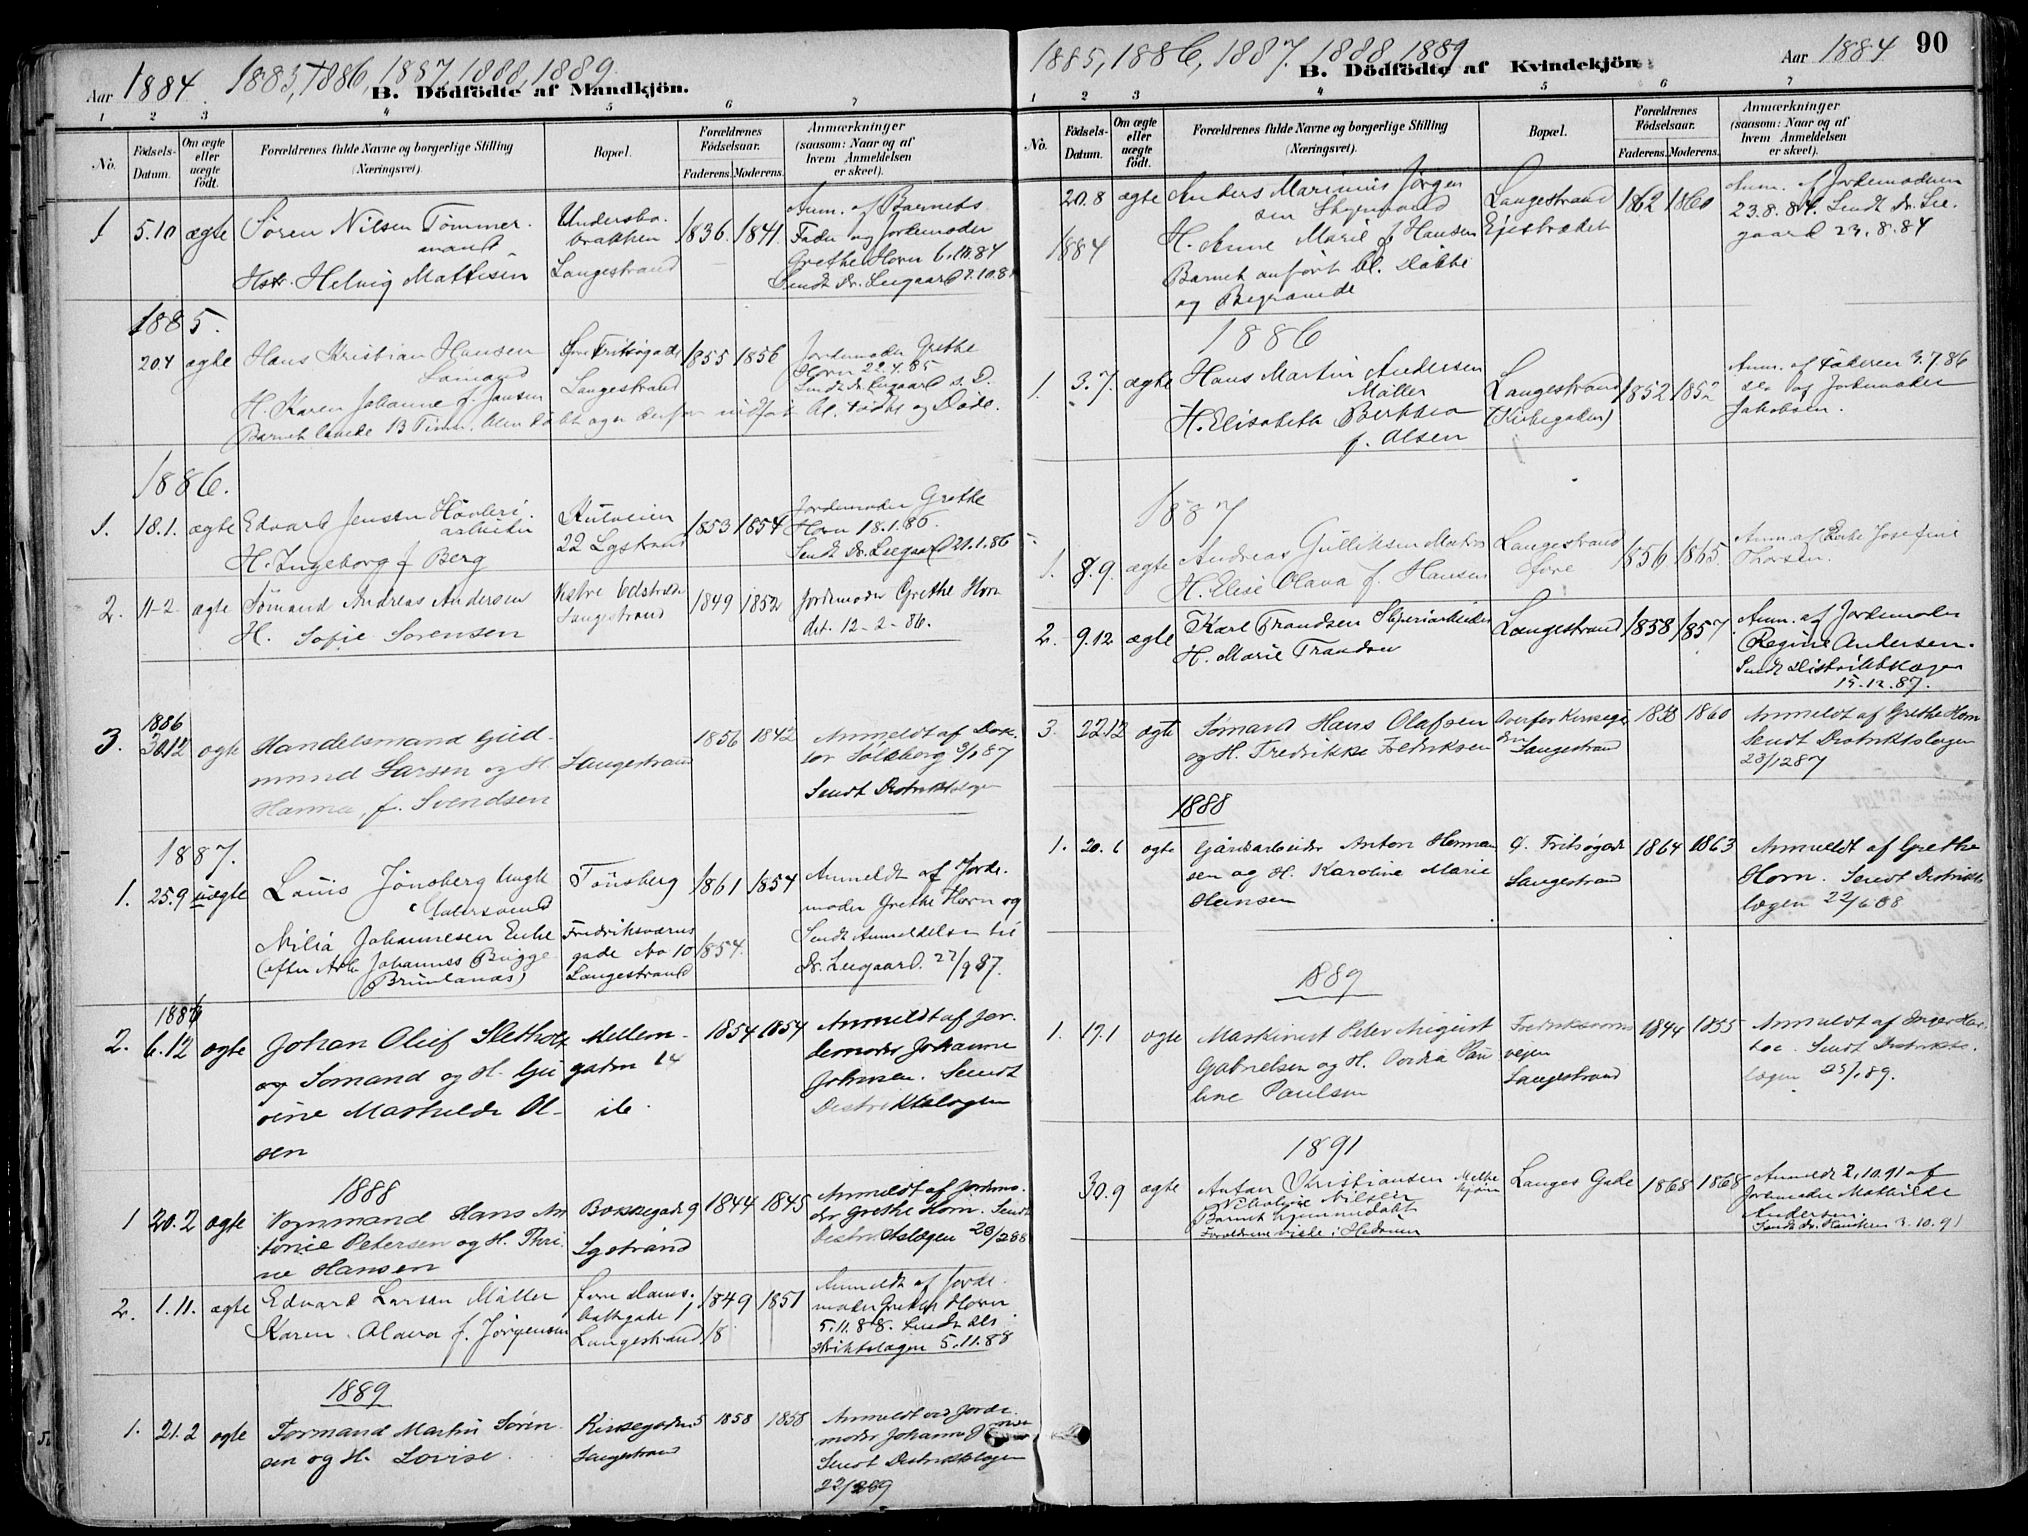 Aar 1884. 1885, 1886, 1887, 1888, 1889.
B. Dödfödte af Mandkjön.
1 2 3 4 5 6 7
No.
Födsels-Datum.
Om ægte eller uægte födt.
Forældrenes fulde Navne og borgerlige Stilling (Næringsvei).
Bopæl.
Forældrenes Födselsaar.
Faderens. Moderens.
Anmærkninger (saasom: Naar og af hvem Anmeldelsen er skeet).
1 5.10 ægte Sören Nilsen Tömmermand
Hstr. Helvig Mattisen
Langestrand
1836. 1841.
Anm. af Barnets
Fader og Jordemoder
Grethe Horn 6.10.84
Sendt Dr. Leegaard
1885.
20.4 ægte Hans Kristian Hansen
Sömand
H. Karen Johanne f. Jansen
Langestrand
1855 1856
Jordemoder Grethe
Horn 22.4.85
Sendt Dr. Leegaard s. D.
Barnet levede 13 Timer,
1886.
1. 18.1. ægte Edvard Jensen Hövleriarbeider
H. Ingeborg f. Berg
22 Lgstrand
1853 1854
Jordemoder Grethe
Horn 18.1.86.
Sendt Dr. Leegaard 21.1.86
2. 11-2 ægte Sömand Andreas Andersen
H. Sofie Sorensen
Langestrand
1849 1852
Jordemoder Grethe Horn
dat. 12-2-86.
3. 1886
30.12 ægte Handelsmand Gudmund Larsen og H.
Hanna, f. Svendsen
Langestrand
1856 1842
Anmeldt af Doktor Sölsberg 3/1 87
Sendt Distriktslægen
1887.
1. 25.9 uægte Louis Jönsberg Ungk.
Tönsberg
1861 1854
Anmeldt af Jordemoder Grethe Horn og
Sendt Anmeldelsen til
Dr. Leegaard. 27/9 87.
Milia Johannesen Enke
(efter Arb. Johannes Brygge
Brunlanæs)
Fredriksværns
gade No 10
Langestrand
1854.
2. 6.12 ægte Johan Oluf Sletholt
og Sömand og H. Gurine Mathilde Olsen
Mellemgaden 14
1854 1854
Anmeldt af Jordemoder Johanne
Johnsen. Sendt
Distriktslægen
1888
1 20.2 ægte Vognmand Hans Antonie Petersen og H. Thrine Hansen
Bökkegade 9
Lgstrand
1844 1845
Anmeldt af Jordemoder Grethe Horn. Sendt
Distriktslægen 23/2 88
2. 1.11. ægte Edvard Larsen Möller
Karen Olava f. Jörgensen
Langestrand
1849 1851
18
Anmeldt af Jordemoder Grethe Horn
5.11.88. Sendt Distriktslægen 5.11.88
1889
1. 21.2 ægte Formand Martin Sörensen og H. Lovise
Kirkegaden 5
Langestrand
1858 1858
Anmeldt ved Jordemoder Johanne
Sendt Distriktslægen
22/2 89
1885, 1886, 1887. 1888 1889
B. Dödfödte af Kvindekjön.
Aar 1884
90
1 2 3 4 5 6 7
No.
Födsels-Datum.
Om ægte eller uægte födt.
Forældrenes fulde Navne og borgerlige Stilling (Næringsvei).
Bopæl.
Forældrenes Födselsaar.
Faderens. Moderens.
Anmærkninger (saasom: Naar og af hvem Anmeldelsen er skeet).
20.8 ægte Anders Marinius Jörgensen
1884
H. Anne Marie f. Hansen
Barnet anfört bl. Döbte
og Begravede
Langestrand
1862 1860
Anm. af Jordemoderen
23.8.84. Sendt Dr. Leegaard 23.8.84
1886
1. 3.7. ægte Hans Martin Andersen
Möller
H. Elisabeth
f. Olsen
Langestrand
(Kirkegaden)
1852 1852
Anm. af Faderen 3.7.86
do. af Jordemoder
Jakobsen.
1887
1. 8.9. ægte Andreas Gulliksen
H. Elise Olava f. Hansen
Langestrand
1856 1865.
Anm. af Enke Josefine
Thorsen.
2. 9.12 ægte Karl Trandsen Sliperiarbeider
H. Marie Trandsen
Langestrand
1858 1857
Anm. af Jordemoder
Regine Andersen.
Sendt Distriktslægen
15.12.87.
3. 22.12 ægte Sömand Hans Olafsen
og H. Fredrikke Fredriksen
Langestrand
1858 1860
Anmeldt af Grethe Horn
Sendt Distriktslægen
23/12 87
1888
1. 20.6 ægte Gårdsarbeider Anton Hermansen og H. Karoline Marie
Hansen
Ö. Fritsögade
Langestrand
1864 1863
Anmeldt af Grethe
Horn. Sendt Distriktslægen 22/6 88
1889
1. 17.1 ægte Maskinist Peter August
Gabrielsen og H. Pauline Paulsen
Fredriksværnsveien
Langestrand
1844 1855
Anmeldt af
Sendt Distriktslægen 25/1 89.
1891
30.9 ægte Anton Kristiansen
Nikoline Nilsen
Barnet hjemmedöbt
Forældrene viede i Hedrum
Langes Gade
1868 1868
Anmeldt 2.10.91 af
Jordemoder Mathilde
Andersen.
Sendt Dr. 3.10.91